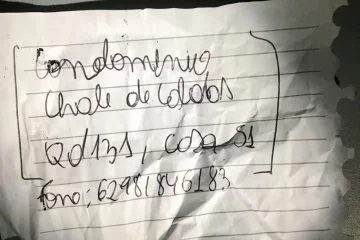 Condominio
Chale de Caldas
Qd 131, casa 51
fono: 62981846183